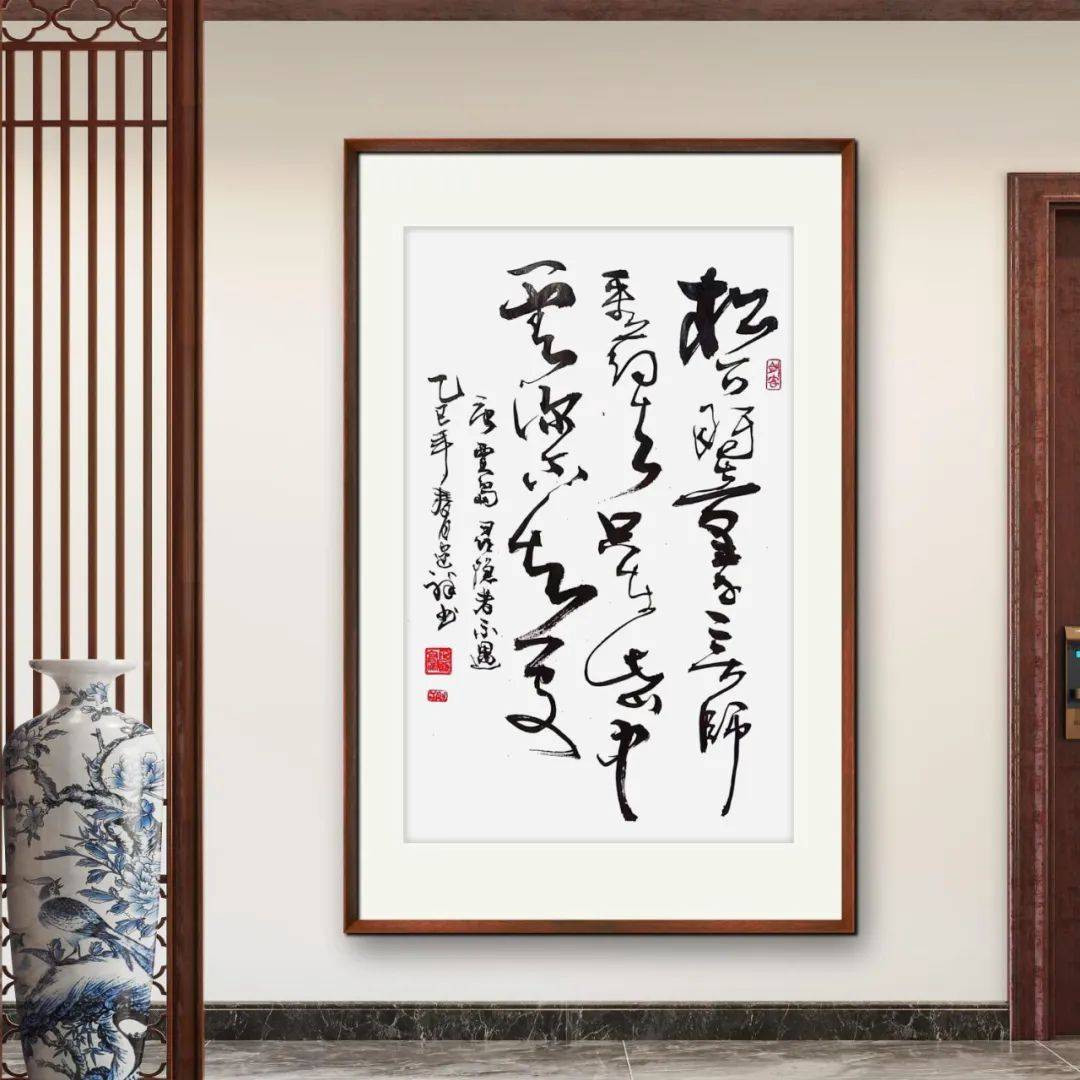 松下問童子言師
采药去只在此山中
雲深不知處
唐賈島尋隐者不遇
乙巳年春月祥书